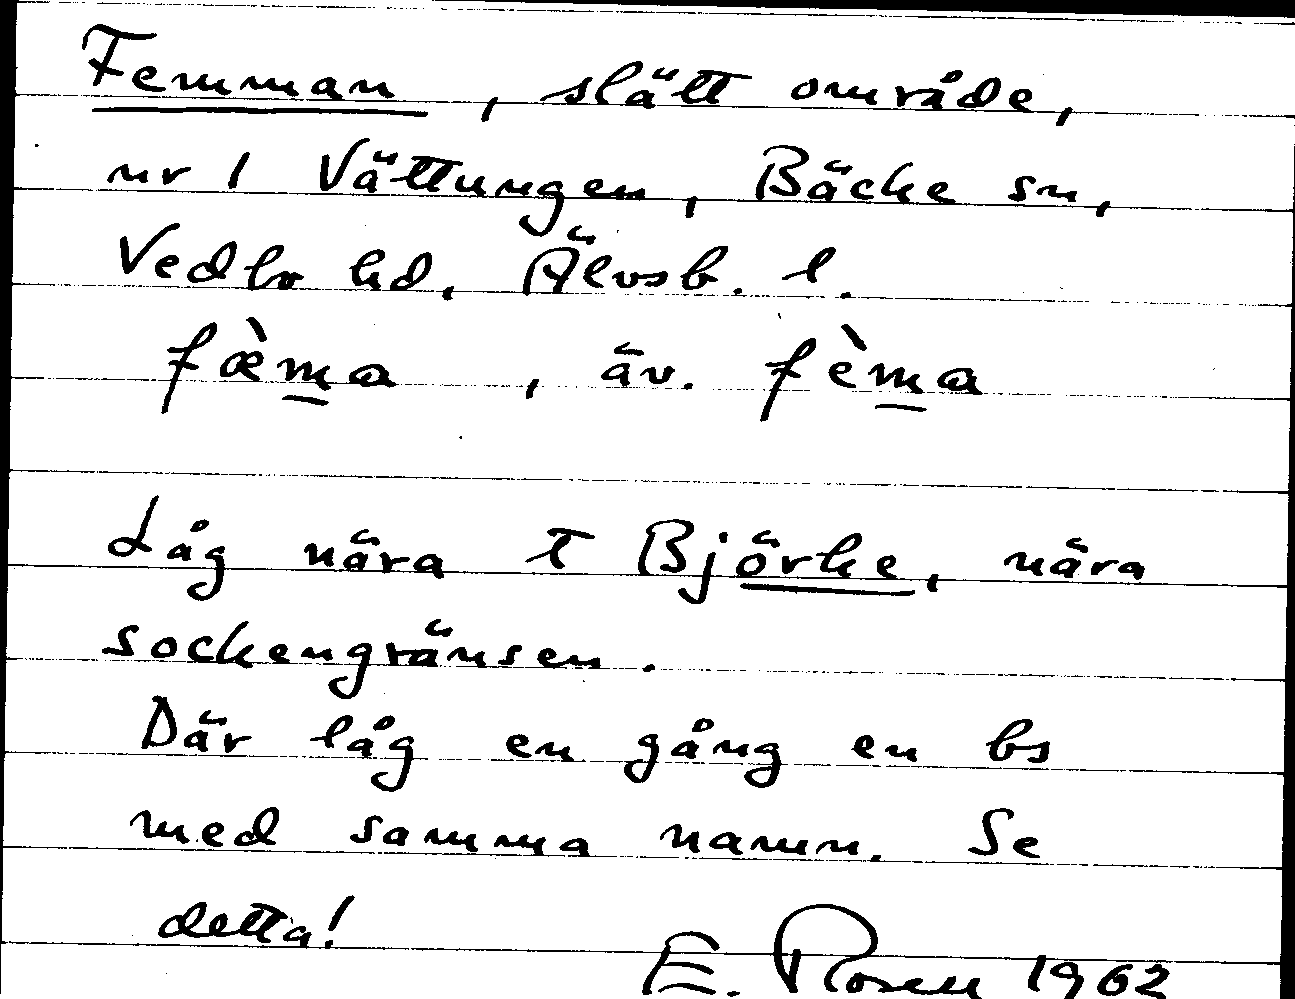 Femman, slätt område,
nr 1 Vättungen, Bäcke sn,
Vedbo hd. Älvsb. l.
fæ̀ma, äv. fèma
Låg nära t Björke, nära
sockengränsen.
Där låg en gång en bs
med samma namn. Se
detta!
E. Rosen 1962